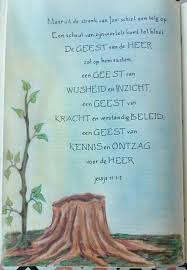 Maar uit de stronk van Isaï schiet een telg op
Een scheut van zijn wortels komt tot bloei.
De GEEST van de HEER
zal op hem rusten,
een GEEST van
WIJSHEID en INZICHT,
een GEEST van
KRACHT en verstandig BELEID,
een GEEST van
KENNIS en ONTZAG
voor de HEER
Jesaja 11:1-2